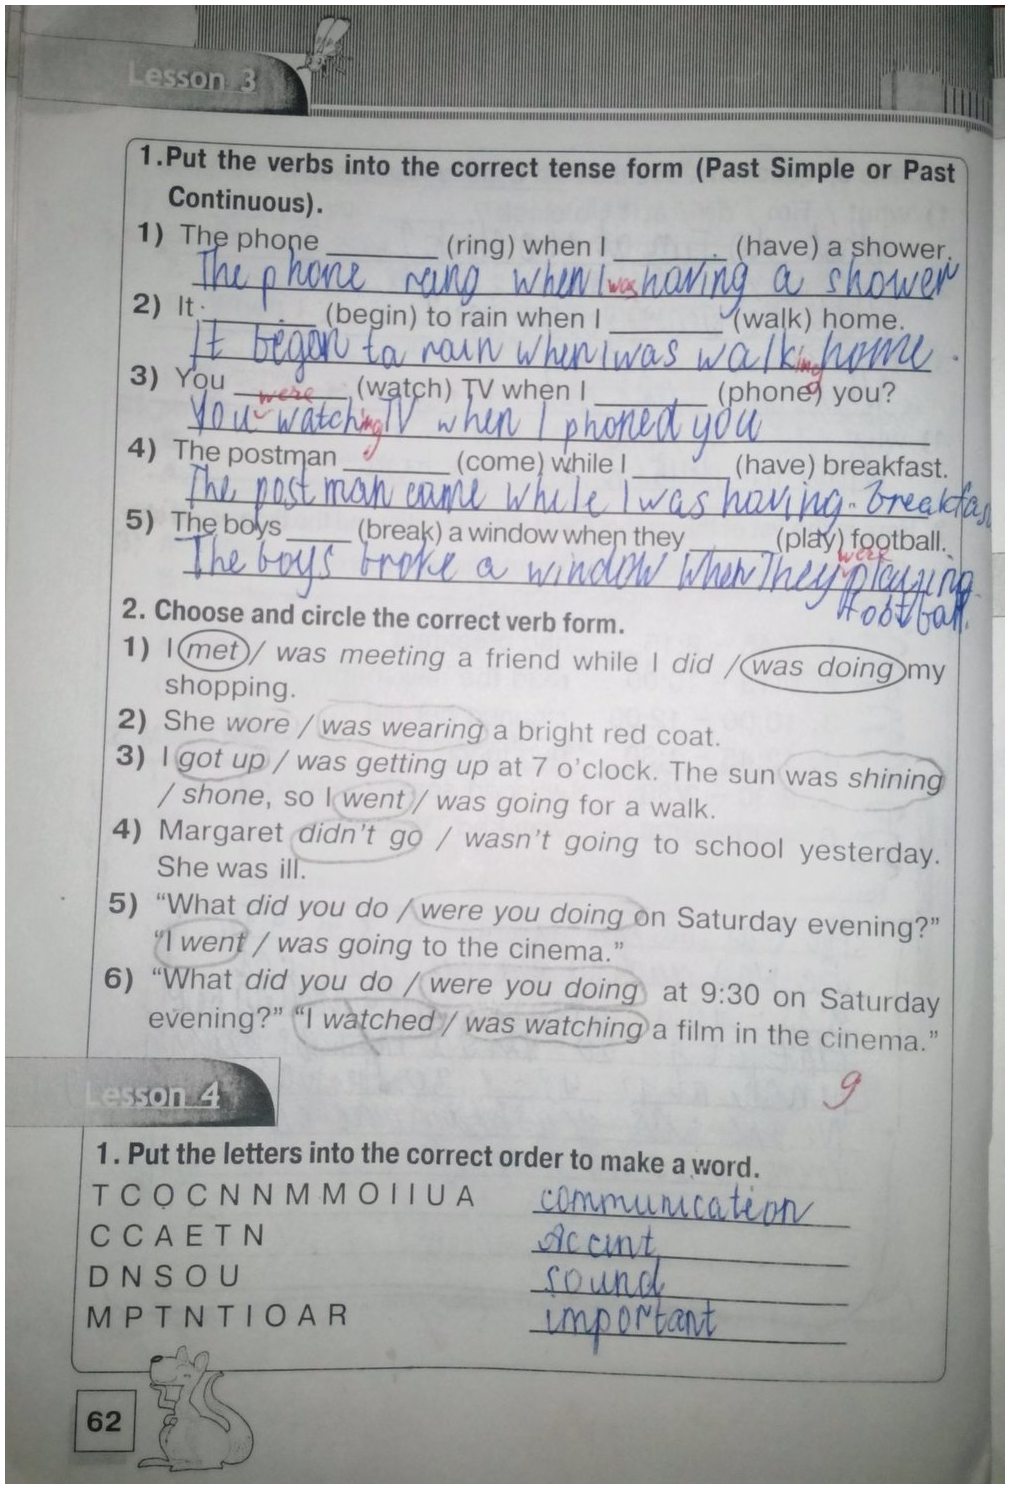 Lesson 3
1.Put the verbs into the correct tense form (Past Simple or Past
Continuous).
1) The phone ________ (ring) when I ________ (have) a shower.
The phone rang when I was having a shower
2) It ________ (begin) to rain when I ________ (walk) home.
It began to rain when I was walking home.
3) You ________ (watch) TV when I ________ (phone) you?
were
You watching TV when I phoned you
4) The postman ________ (come) while I _______ (have) breakfast.
The postman came while I was having breakfas
5) The boys _____ (break) a window when they ______ (play) football.
were
The boys broke a window when They playing
football.
2. Choose and circle the correct verb form.
1) I met / was meeting a friend while I did / was doing my
shopping.
2) She wore / was wearing a bright red coat.
3) I got up / was getting up at 7 o'clock. The sun was shining
/ shone, so I went / was going for a walk.
4) Margaret didn't go / wasn't going to school yesterday.
She was ill.
5) “What did you do / were you doing on Saturday evening?”
“I went / was going to the cinema.”
6) “What did you do / were you doing at 9:30 on Saturday
evening?” “I watched / was watching a film in the cinema.”
9
Lesson 4
1. Put the letters into the correct order to make a word.
T C O C N N M M O I I U A communication
C C A E T N Accint
D N S O U sound
M P T N T I O A R important
62